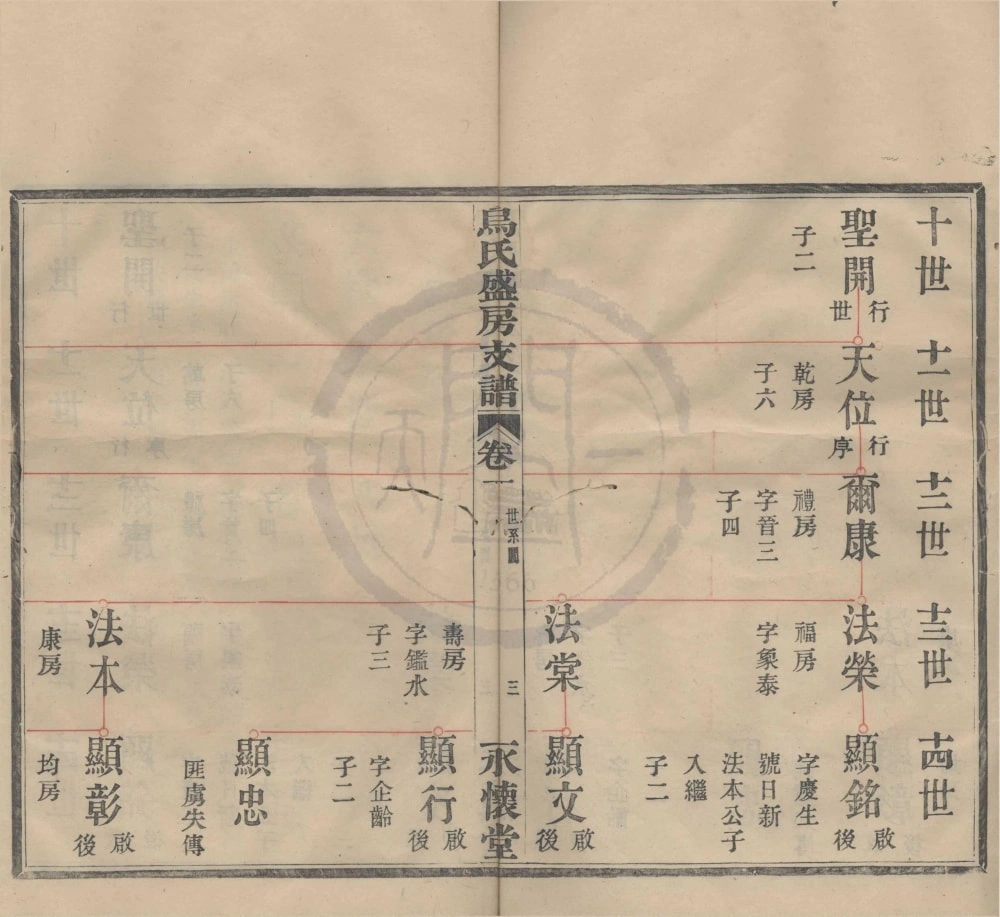 十世
十一世
十二世
十三世
十四世
聖開
行世
子二
天位
行序
乾房
子六
爾康
禮房
字晉三
子四
法榮
福房
字象泰
顯銘
啟後
字慶生
號日新
法本公子
入繼
子二
法棠
顯文
啟後
烏氏盛房支譜
卷一
世系圖
三
永懷堂
壽房
字鑑水
子三
顯行
啟後
字企齡
子二
顯忠
匪虜失傳
法本
康房
顯彰
啟後
均房